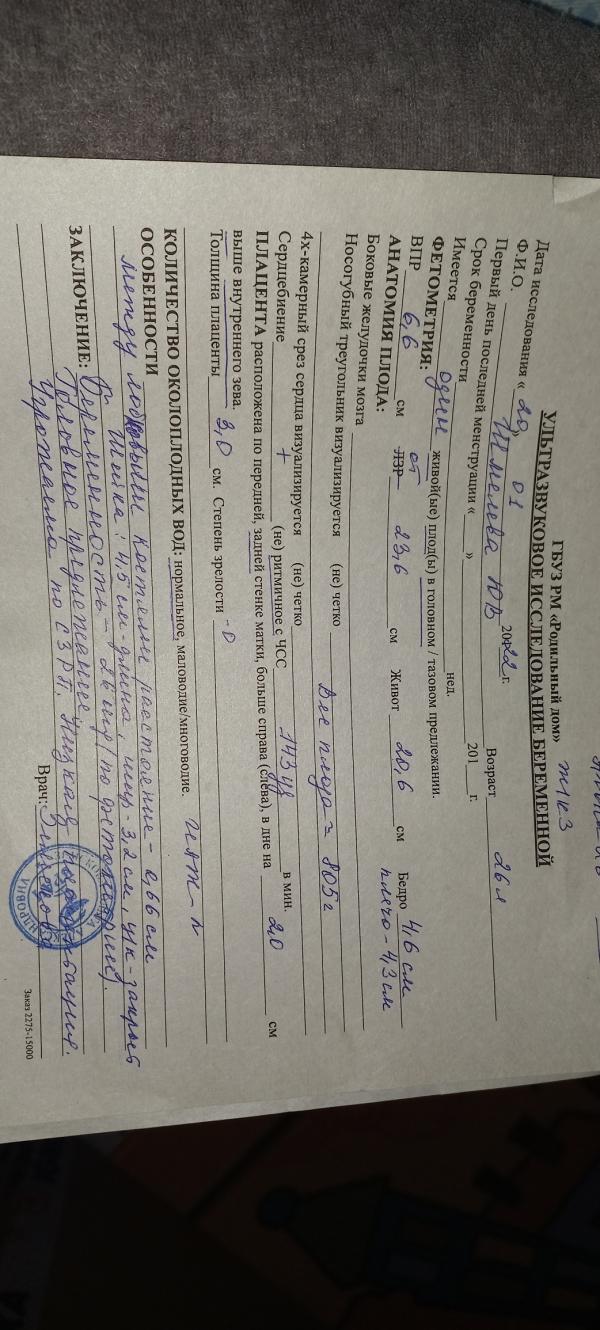 ГБУЗ РМ «Родильный дом»
УЛЬТРАЗВУКОВОЕ ИССЛЕДОВАНИЕ БЕРЕМЕННОЙ
Дата исследования « 20 » 01 2022 г.
Ф.И.О. Шмелева Ю В Возраст 26 л
Первый день последней менструации « » 201 г.
Срок беременности нед.
Имеется один живой(ые) плод(ы) в головном / тазовом предлежании.
ФЕТОМЕТРИЯ:
ВПР 6,6 см ЛЗР ОГ 23,6 см Живот 20,6 см Бедро 4,6 см
плечо - 4,3 см
АНАТОМИЯ ПЛОДА:
Боковые желудочки мозга
Носогубный треугольник визуализируется (не) четко
Вес плода ≈ 805 г
4х-камерный срез сердца визуализируется (не) четко
Сердцебиение + (не) ритмичное с ЧСС 143 уд в мин.
ПЛАЦЕНТА расположена по передней, задней стенке матки, больше справа (слева), в дне на 2,0 см
выше внутреннего зева.
Толщина плаценты 3,0 см. Степень зрелости - 0
КОЛИЧЕСТВО ОКОЛОПЛОДНЫХ ВОД: нормальное, маловодие/многоводие.
ОСОБЕННОСТИ
между костями расстояние - 0,66 см
Шейка: 4,5 см - длина, - 3,2 см, закрыт
ЗАКЛЮЧЕНИЕ: Беременность - 26 нед (по фетометрии).
Головное предлежание. Низкая плацентация.
Угрожаема по СЗРП.
Врач:
Заказ 2275-15000